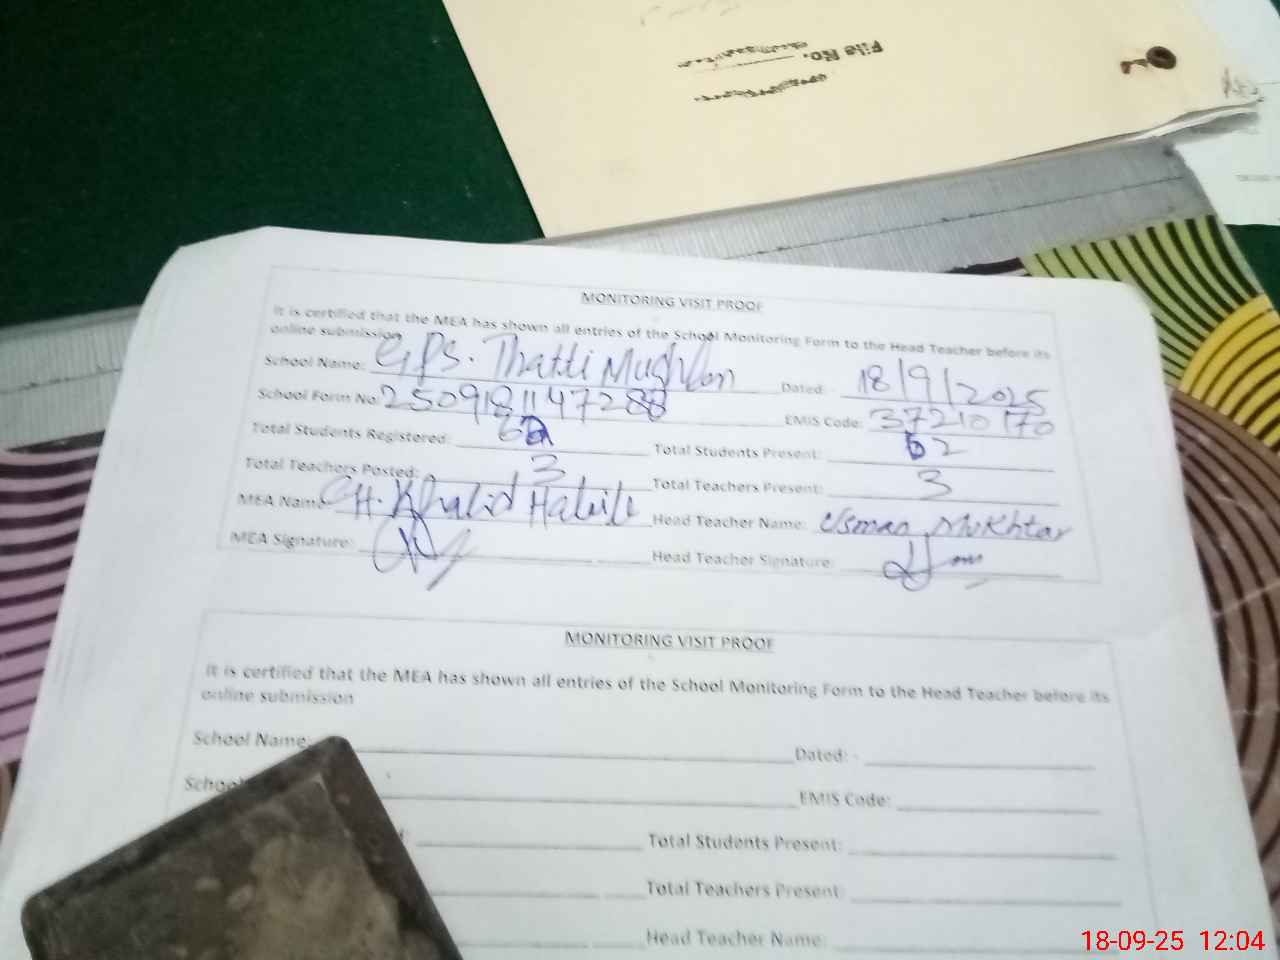 File No.
MONITORING VISIT PROOF
It is certified that the MEA has shown all entries of the School Monitoring Form to the Head Teacher before its
online submission
School Name: GPS. Thatti Mughlan Dated: - 18/9/2025
School Form No: 2509181147288 EMIS Code: 37210170
Total Students Registered: Total Students Present: 62
Total Teachers Posted: 3 Total Teachers Present: 3
MEA Name: CH. Khalid Habib Head Teacher Name: Usman Mukhtar
MEA Signature: Head Teacher Signature:
MONITORING VISIT PROOF
It is certified that the MEA has shown all entries of the School Monitoring Form to the Head Teacher before its
online submission
School Name: Dated: -
School EMIS Code:
Total Students Present:
Total Teachers Present:
Head Teacher Name:
18-09-25 12:04